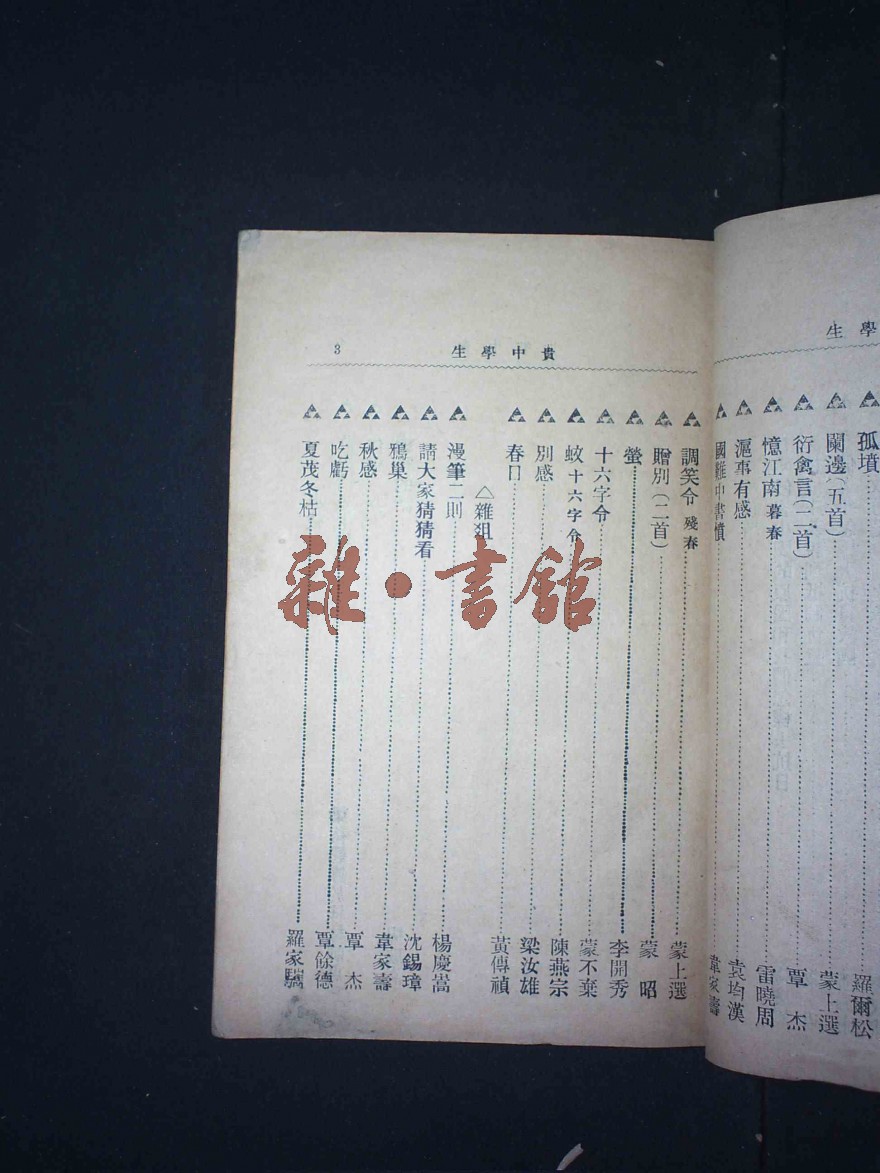 生學
孤墳 羅爾松
闌邊(五首) 蒙上選
衍禽言(二首) 覃杰
憶江南 暮春 雷曉周
滬事有感 袁均漢
國難中書憤 韋家壽
生學中貴
3
調笑令 殘春 蒙上選
贈別(二首) 蒙昭
螢 李開秀
十六字令 蒙不棄
蚊 十六字令 陳燕宗
別感 梁汝雄
春日 黃傳禎
△雜俎
漫筆二則 楊慶嵩
請大家猜猜看 沈錫璋
鴉巢 韋家壽
秋感 覃杰
吃虧 覃餘德
夏茂冬枯 羅家驪
雜·書館